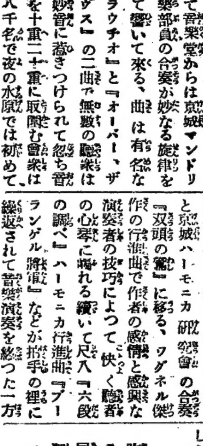 て音楽堂からは京城マンドリ
ン部員の合奏が妙なる旋律を
て響いて來る、曲は有名な
ラウチオ』と『オーバー、ザ
ヴス』の二曲で無数の聽衆は
妙音に惹きつけられて忽ち音
を十重二十重に取囲む會衆は
八千名で夜の水原では初めて
と京城ハーモニカ研究會の合奏
『双頭の鷲』に移る、ワグネル傑
作の行進曲で作者の感情と感興な
演奏者の技巧によつて快く聽者
の心琴に觸れる續いて尺八『六段
の調べ』ハーモニカ行進曲『ブー
ランゲル將軍』などが拍手の裡に
繰返されて音樂演奏を終つた一方